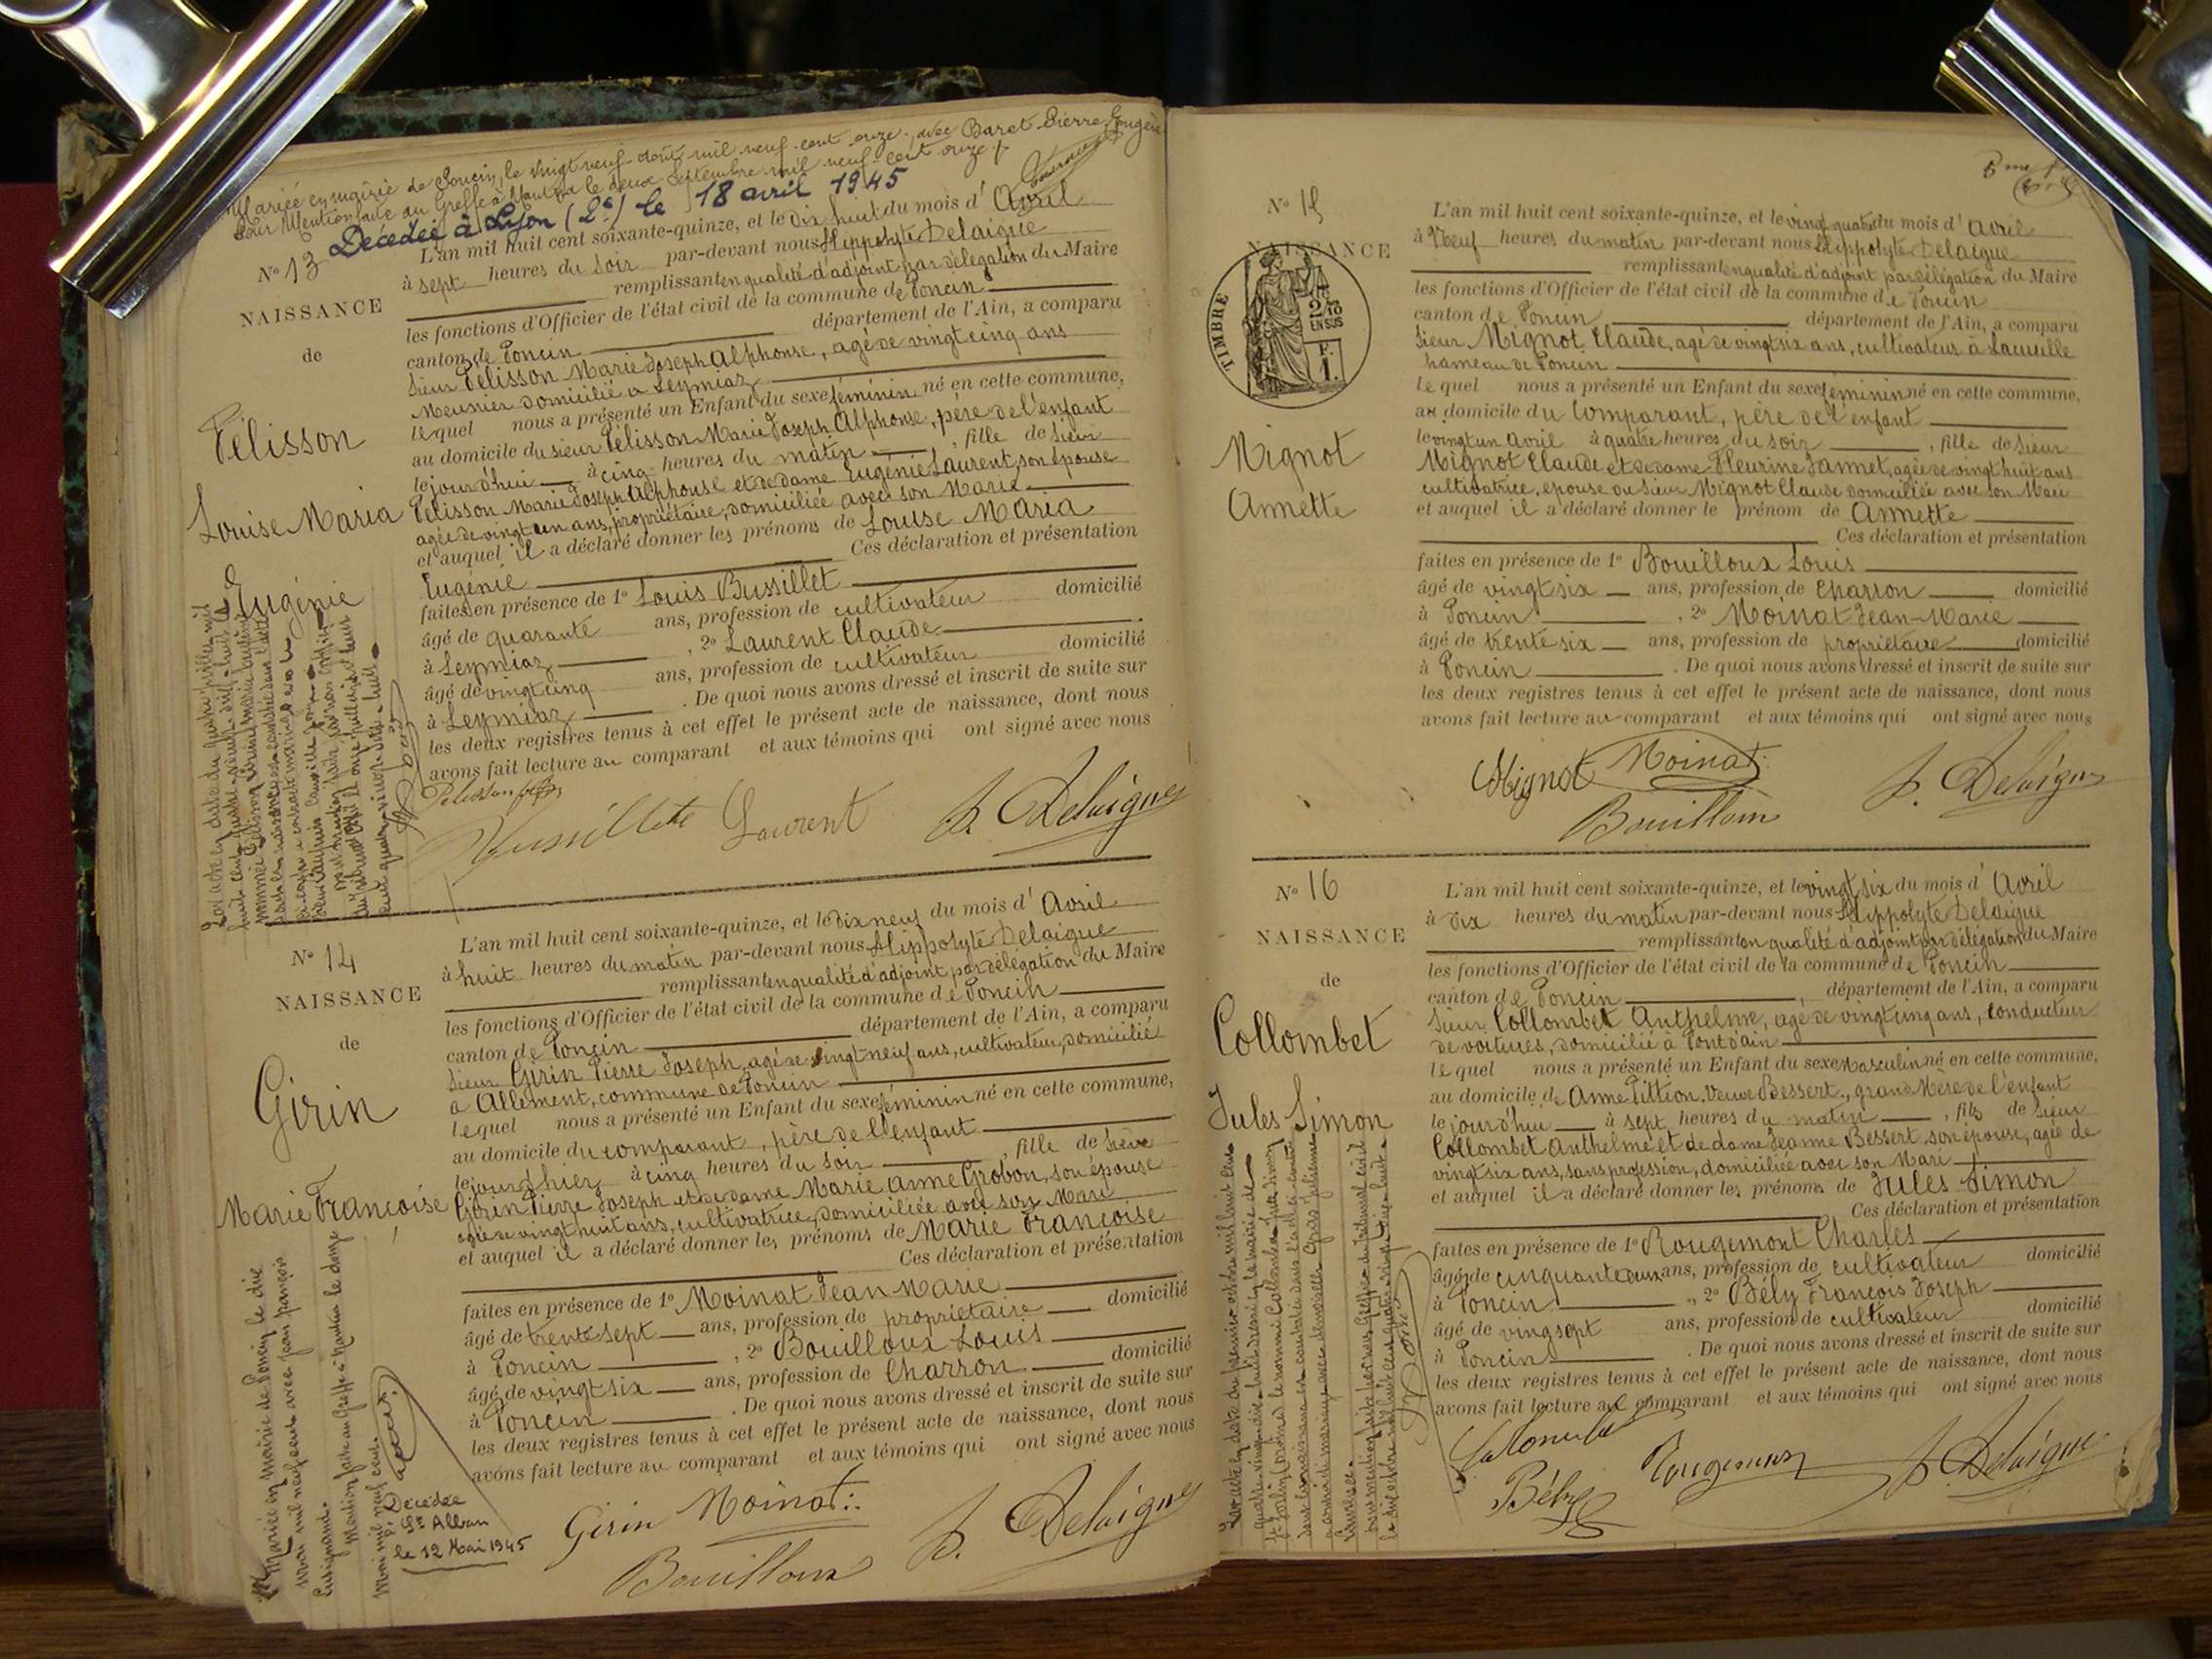 Mariée en mairie de Poncin, le vingt neuf août mil neuf cent onze, avec Baret Pierre Eugène
Pour Mention faite au Greffe à Nantua le deux Septembre mil neuf cent onze
Décédée à Lyon (2e) le 18 avril 1945
N° 13
NAISSANCE
de
Pélisson
Louise Maria
Eugénie
L'an mil huit cent soixante-quinze, et le dix huit du mois d' Avril
à sept heures du Soir par-devant nous Hippolyte Delaigue
remplissant en qualité d'adjoint par délégation du Maire
les fonctions d'Officier de l'état civil de la commune de Poncin
canton de Poncin département de l'Ain, a comparu
Sieur Pélisson Marie Joseph Alphonse, agé de vingt cinq ans
Meunier domicilié à Leymiaz
lequel nous a présenté un Enfant du sexe féminin né en cette commune,
au domicile du sieur Pélisson Marie Joseph Alphonse, père de l'enfant
le jourd'hui à cinq heures du matin , fille de Sieur
Pélisson Marie Joseph Alphonse et de dame Eugénie Laurent, son épouse
agée de vingt un ans, propriétaire, domiciliée avec son Mari
et auquel il a déclaré donner les prénoms de Louise Maria
Eugénie Ces déclaration et présentation
faites en présence de 1° Louis Bussillet
âgé de quarante ans, profession de cultivateur domicilié
à Leymiaz , 2° Laurent Claude
âgé de vingt cinq ans, profession de cultivateur domicilié
à Leymiaz . De quoi nous avons dressé et inscrit de suite sur
les deux registres tenus à cet effet le présent acte de naissance, dont nous
avons fait lecture au comparant et aux témoins qui ont signé avec nous
Pelisson
Bussillet Laurent h. Delaigue
N° 14
NAISSANCE
de
Girin
Marie Françoise
L'an mil huit cent soixante-quinze, et le dix neuf du mois d' Avril
à huit heures du matin par-devant nous Hippolyte Delaigue
remplissant en qualité d'adjoint par délégation du Maire
les fonctions d'Officier de l'état civil de la commune de Poncin
canton de Poncin département de l'Ain, a comparu
Sieur Girin Pierre Joseph, agé de vingt neuf ans, cultivateur, domicilié
à Allement, commune de Poncin
lequel nous a présenté un Enfant du sexe féminin né en cette commune,
au domicile du comparant, père de l'enfant
le jour d'hier à cinq heures du soir , fille de Sieur
Girin Pierre Joseph et de dame Marie Anne Grobon, son épouse
agée de vingt huit ans, cultivatrice, domiciliée avec son Mari
et auquel il a déclaré donner les prénoms de Marie Françoise
Ces déclaration et présentation
faites en présence de 1° Moinat Jean Marie
âgé de trente sept ans, profession de propriétaire domicilié
à Poncin , 2° Bouilloux Louis
âgé de vingt six ans, profession de Charron domicilié
à Poncin . De quoi nous avons dressé et inscrit de suite sur
les deux registres tenus à cet effet le présent acte de naissance, dont nous
avons fait lecture au comparant et aux témoins qui ont signé avec nous
Mariée en mairie de Poncin le dix
mars mil neuf cent avec Jean François
Mention faite au Greffe à Nantua le douze
Mars mil neuf cent.
Décédée
à St Alban
le 12 Mai 1945
Girin Moinat
Bouilloux h. Delaigue
N° 15
NAISSANCE
TIMBRE
2/10
EN SUS
F.
1.
Mignot
Annette
L'an mil huit cent soixante-quinze, et le vingt quatre du mois d' Avril
à Neuf heures du matin par-devant nous Hippolyte Delaigue
remplissant en qualité d'adjoint par délégation du Maire
les fonctions d'Officier de l'état civil de la commune de Poncin
canton de Poncin département de l'Ain, a comparu
Sieur Mignot Claude, agé de vingt six ans, cultivateur à Lacueille
hameau de Poncin
lequel nous a présenté un Enfant du sexe féminin né en cette commune,
au domicile du Comparant, père de l'enfant
le vingt un Avril à quatre heures du soir , fille de Sieur
Mignot Claude et de dame Fleurine Jannet, agée de vingt huit ans
cultivatrice, epouse du Sieur Mignot Claude domiciliée avec son Mari
et auquel il a déclaré donner le prénom de Annette
Ces déclaration et présentation
faites en présence de 1° Bouilloux Louis
âgé de vingt six ans, profession de Charron domicilié
à Poncin , 2° Moinat Jean-Marie
âgé de trente six ans, profession de propriétaire domicilié
à Poncin . De quoi nous avons dressé et inscrit de suite sur
les deux registres tenus à cet effet le présent acte de naissance, dont nous
avons fait lecture au comparant et aux témoins qui ont signé avec nous
Mignot Moinat
Bouilloux h. Delaigue
N° 16
NAISSANCE
de
Collombet
Jules Simon
L'an mil huit cent soixante-quinze, et le vingt six du mois d' Avril
à dix heures du matin par-devant nous Hippolyte Delaigue
remplissant en qualité d'adjoint par délégation du Maire
les fonctions d'Officier de l'état civil de la commune de Poncin
canton de Poncin , département de l'Ain, a comparu
Sieur Collombet Anthelme, agé de vingt cinq ans, conducteur
de voitures, domicilié à Pont d'ain
lequel nous a présenté un Enfant du sexe Masculin né en cette commune,
au domicile de Anne Pittion, Veuve Bessert, grand Mère de l'enfant
le jourd'hui à sept heures du matin , fils de Sieur
Collombet Anthelme et de dame Jeanne Bessert son épouse, agée de
vingt six ans, sans profession, domiciliée avec son Mari
et auquel il a déclaré donner les prénoms de Jules Simon
Ces déclaration et présentation
faites en présence de 1° Rougemont Charles
âgé de cinquante deux ans, profession de cultivateur domicilié
à Poncin , 2° Bély François Joseph
âgé de vingt sept ans, profession de cultivateur domicilié
à Poncin . De quoi nous avons dressé et inscrit de suite sur
les deux registres tenus à cet effet le présent acte de naissance, dont nous
avons fait lecture au comparant et aux témoins qui ont signé avec nous
Collombet Rougemont h. Delaigue
Bély